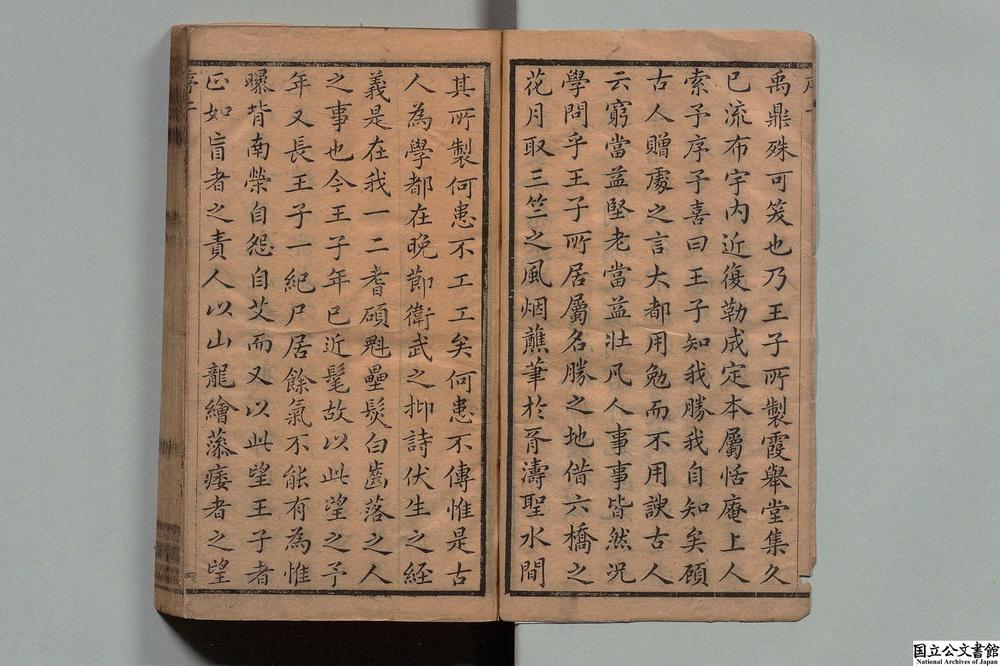 禹鼎殊可笑也乃王子所製霞舉堂集久
已流布宇内近復勒成定本屬恬庵上人
索予序予喜曰王子知我勝我自知矣顧
古人贈處之言大都用勉而不用諛古人
云窮當益堅老當益壯凡人事事皆然况
學問乎王子所居屬名勝之地借六橋之
花月取三竺之風烟蘸筆於胥濤聖水間
其所製何患不工工矣何患不傳惟是古
人為學都在晚節衛武之抑詩伏生之經
義是在我一二耆碩魁壘髮白齒落之人
之事也今王子年已近髦故以此望之予
年又長王子一紀尸居餘氣不能有為惟
曝背南榮自怨自艾而又以此望王子者
正如盲者之責人以山龍繪藻痿者之望
序二
国立公文書館
National Archives of Japan